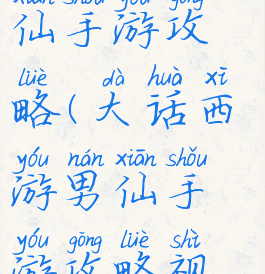 xiān shǒu yóu gōng
仙手游攻
lüè dà huà xī
略(大话西
yóu nán xiān shǒu
游男仙手
yóu gōng lüè shì
游攻略视